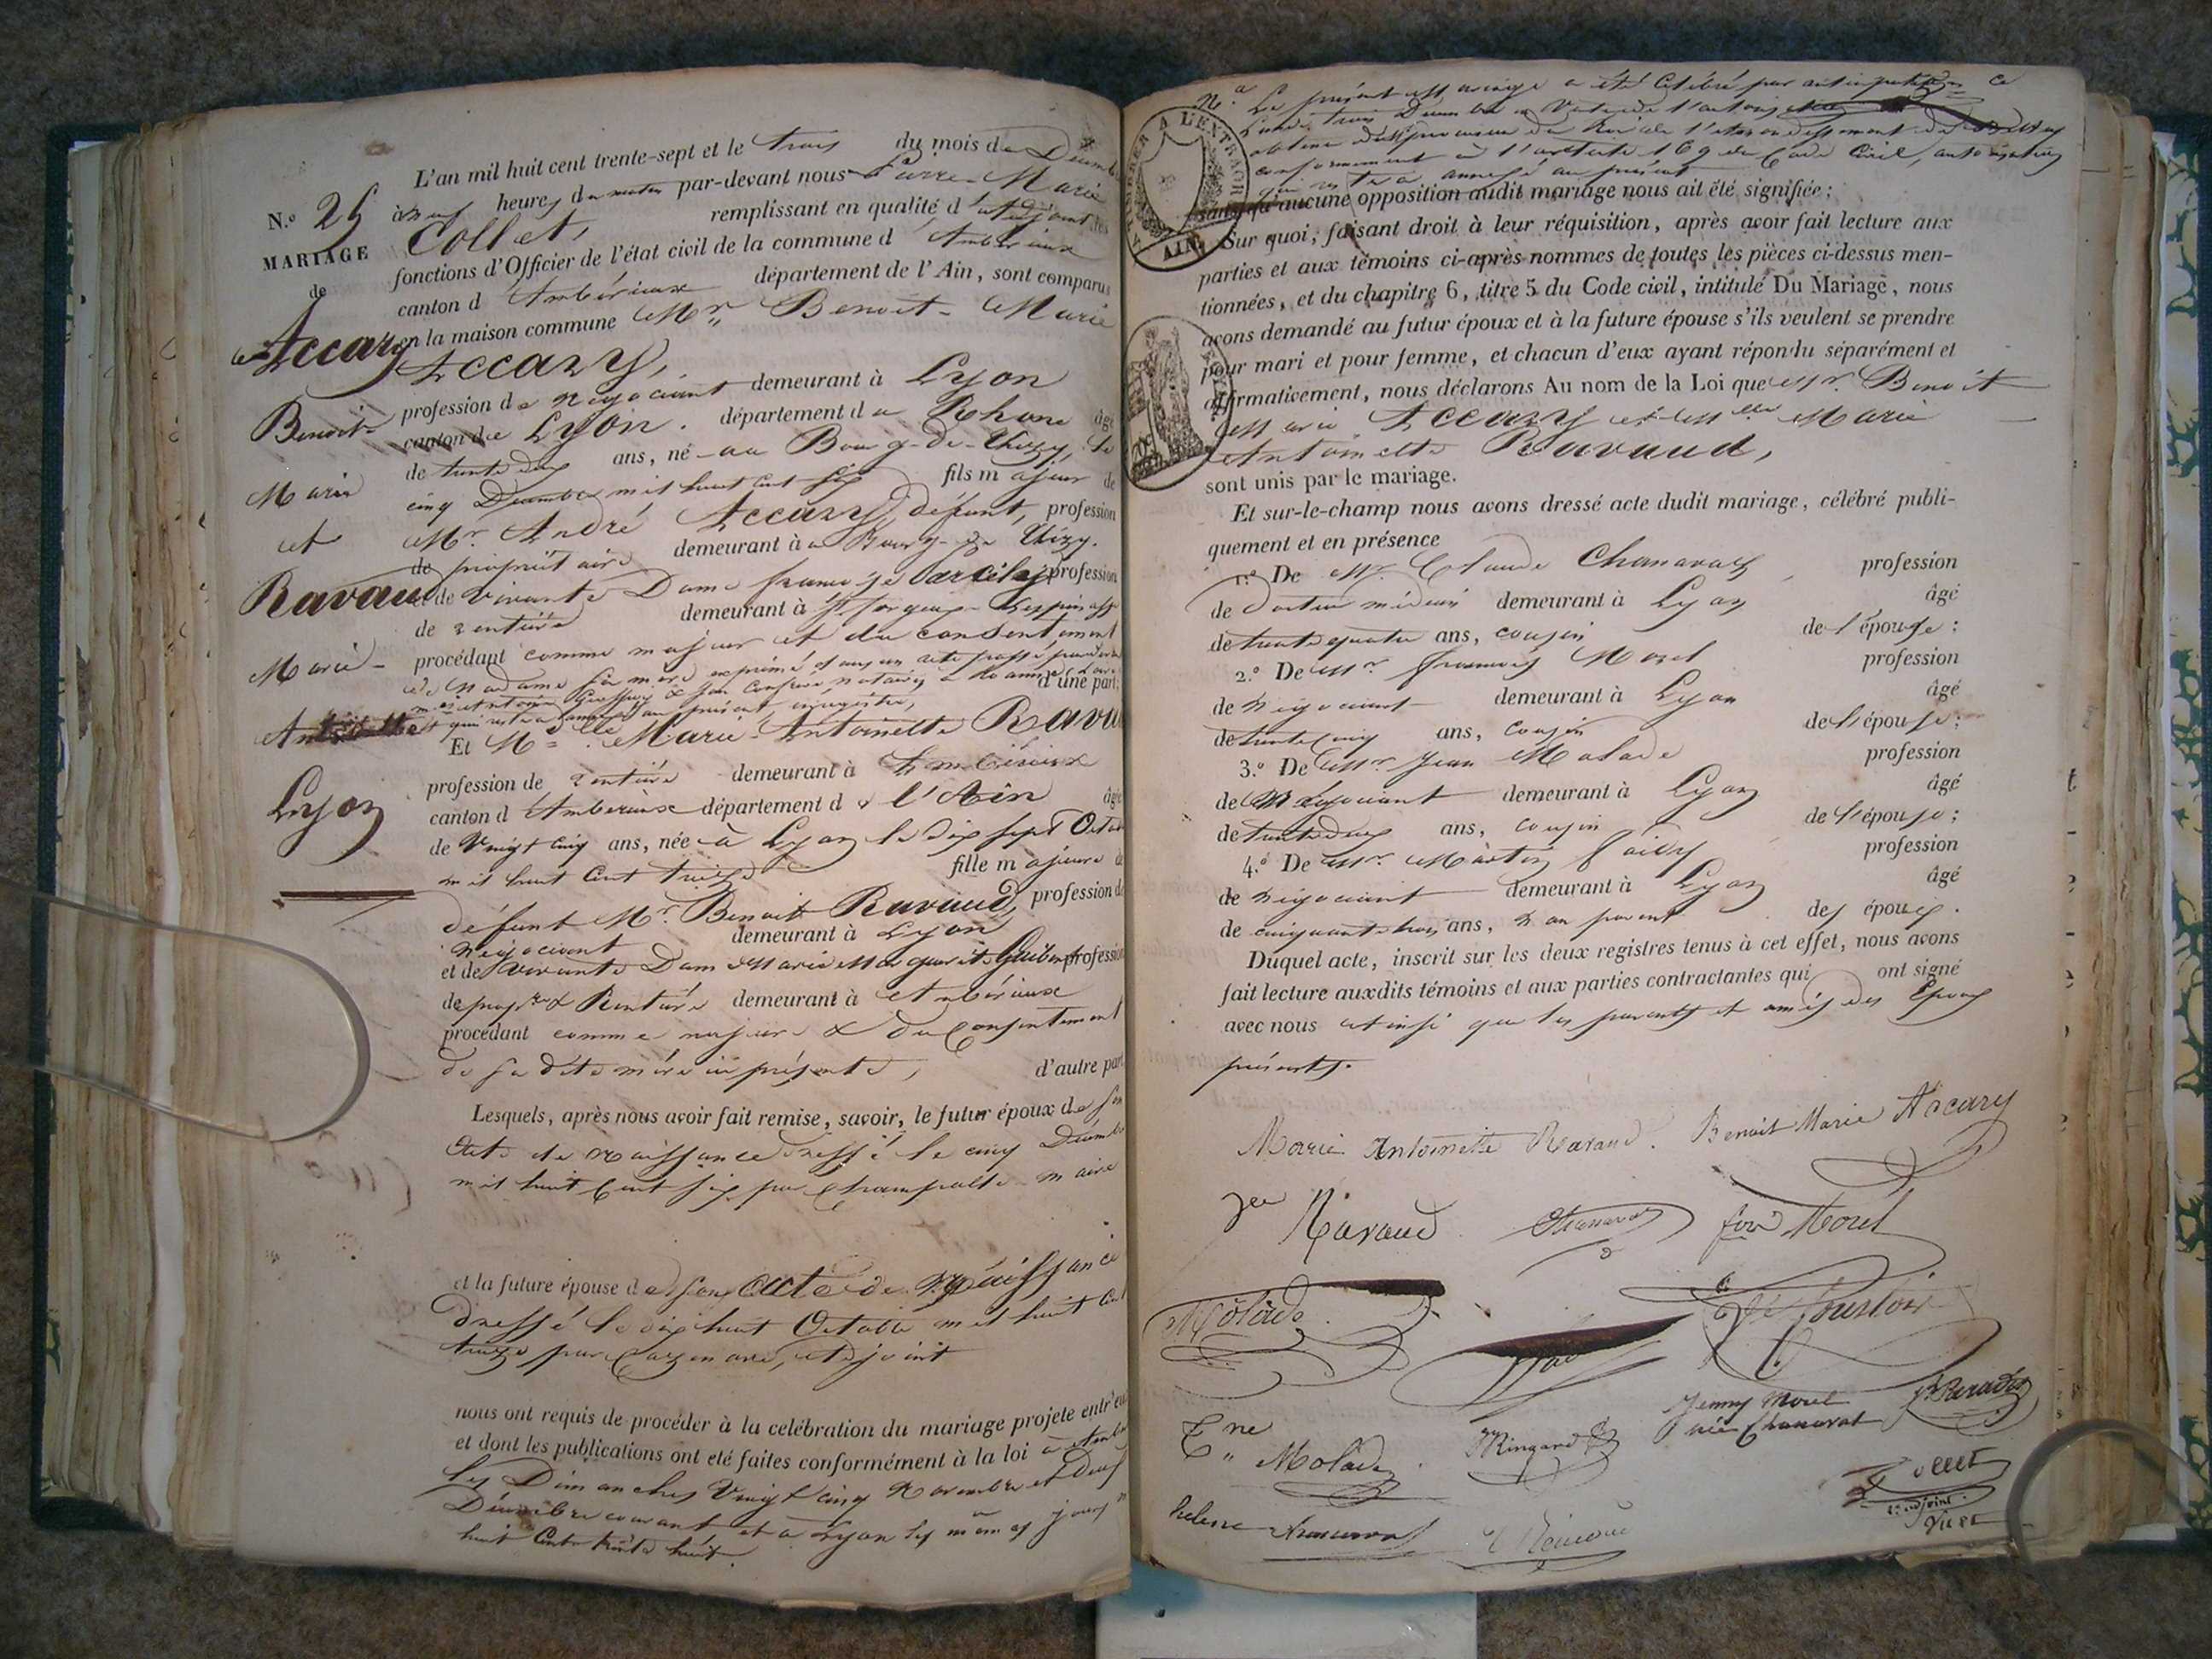 L'an mil huit cent trente-sept et le trois du mois de Décembre
à neuf heures du matin par-devant nous Pierre-Marie
Collet, remplissant en qualité d'adjoint les
fonctions d'Officier de l'état civil de la commune d'Ambérieux
canton d'Ambérieux département de l'Ain, sont comparus
en la maison commune Mr. Benoit-Marie
Accary,
profession de négociant demeurant à Lyon
canton de Lyon département du Rhône âgé
de trente deux ans, né au Bourg-de-Thizy, le
cinq Décembre mil huit cent six fils majeur de
Mr. André Accary, défunt, profession
de propriétaire demeurant à Bourg-de-Thizy.
et de vivante Dame françoise profession
de rentière demeurant à
procédant comme majeur et du consentement
de Madame sa mère exprimé
d'une part;
qui restera annexé au présent
N.º 25
MARIAGE
de
Accary
Benoit
Marie
et
Ravaud
Marie-
Antoinette
Lyon
Et Melle Marie-Antoinette Ravaud
profession de rentière demeurant à Ambérieux
canton d'Ambérieux département de l'Ain âgée
de Vingt cinq ans, née à Lyon le dix sept Octobre
mil huit cent treize fille majeure de
défunt Mr. Benoit Ravaud, profession de
négociant demeurant à Lyon
et de vivante Dame Marie Marguerite profession
de rentière demeurant à Ambérieux
procédant comme majeure & du Consentement
de sa dite mère ici présente, d'autre part
Lesquels, après nous avoir fait remise, savoir, le futur époux de son
acte de naissance dressé le cinq Décembre
mil huit cent six par maire
et la future épouse de son acte de naissance
dressé le dix huit Octobre mil huit cent
treize par adjoint
nous ont requis de procéder à la celébration du mariage projeté entr'eux
et dont les publications ont été faites conformément à la loi à
les Dimanches Vingt cinq Novembre et Deux
Décembre courant et à Lyon les mêmes jours
huit Cent trente huit.
Le présent mariage a été célébré par anticipation ce
Lundi trois Décembre
obtenue du procureur du Roi de l'arrondissement de
conformément à l'article 169 du Code Civil, autorisation
qui restera annexée au présent
sans qu'aucune opposition audit mariage nous ait été signifiée;
Sur quoi, faisant droit à leur réquisition, après avoir fait lecture aux
parties et aux témoins ci-après nommés de toutes les pièces ci-dessus men-
tionnées, et du chapitre 6, titre 5 du Code civil, intitulé Du Mariage, nous
avons demandé au futur époux et à la future épouse s'ils veulent se prendre
pour mari et pour femme, et chacun d'eux ayant répondu séparément et
affirmativement, nous déclarons Au nom de la Loi que Mr. Benoit
Marie Accary et Melle Marie
Antoinette Ravaud,
sont unis par le mariage.
Et sur-le-champ nous avons dressé acte dudit mariage, célébré publi-
quement et en présence
1.º De Mr. Claude Chanavat, profession
de docteur médecin demeurant à Lyon âgé
de trente quatre ans, cousin de l'épouse;
2.º De Mr. françois Morel profession
de négociant demeurant à Lyon âgé
de trente cinq ans, cousin de l'épouse;
3.º De Mr. Jean Molade profession
de Négociant demeurant à Lyon âgé
de trente deux ans, cousin de l'épouse;
4.º De Mr. Martin profession
de négociant demeurant à Lyon âgé
de cinquante trois ans, non parent des époux.
Duquel acte, inscrit sur les deux registres tenus à cet effet, nous avons
fait lecture auxdits témoins et aux parties contractantes qui ont signé
avec nous ainsi que les parents et amis des Epoux
présents.
Marie Antoinette Ravaud. Benoit Marie Accary
Ravaud Chanavat Morel
Molade
Molade Mingand Jenny Morel
née Chanavat
Paradis
helene Chanavat
Collet
adjoint
A L'EXTRAOR
AIN